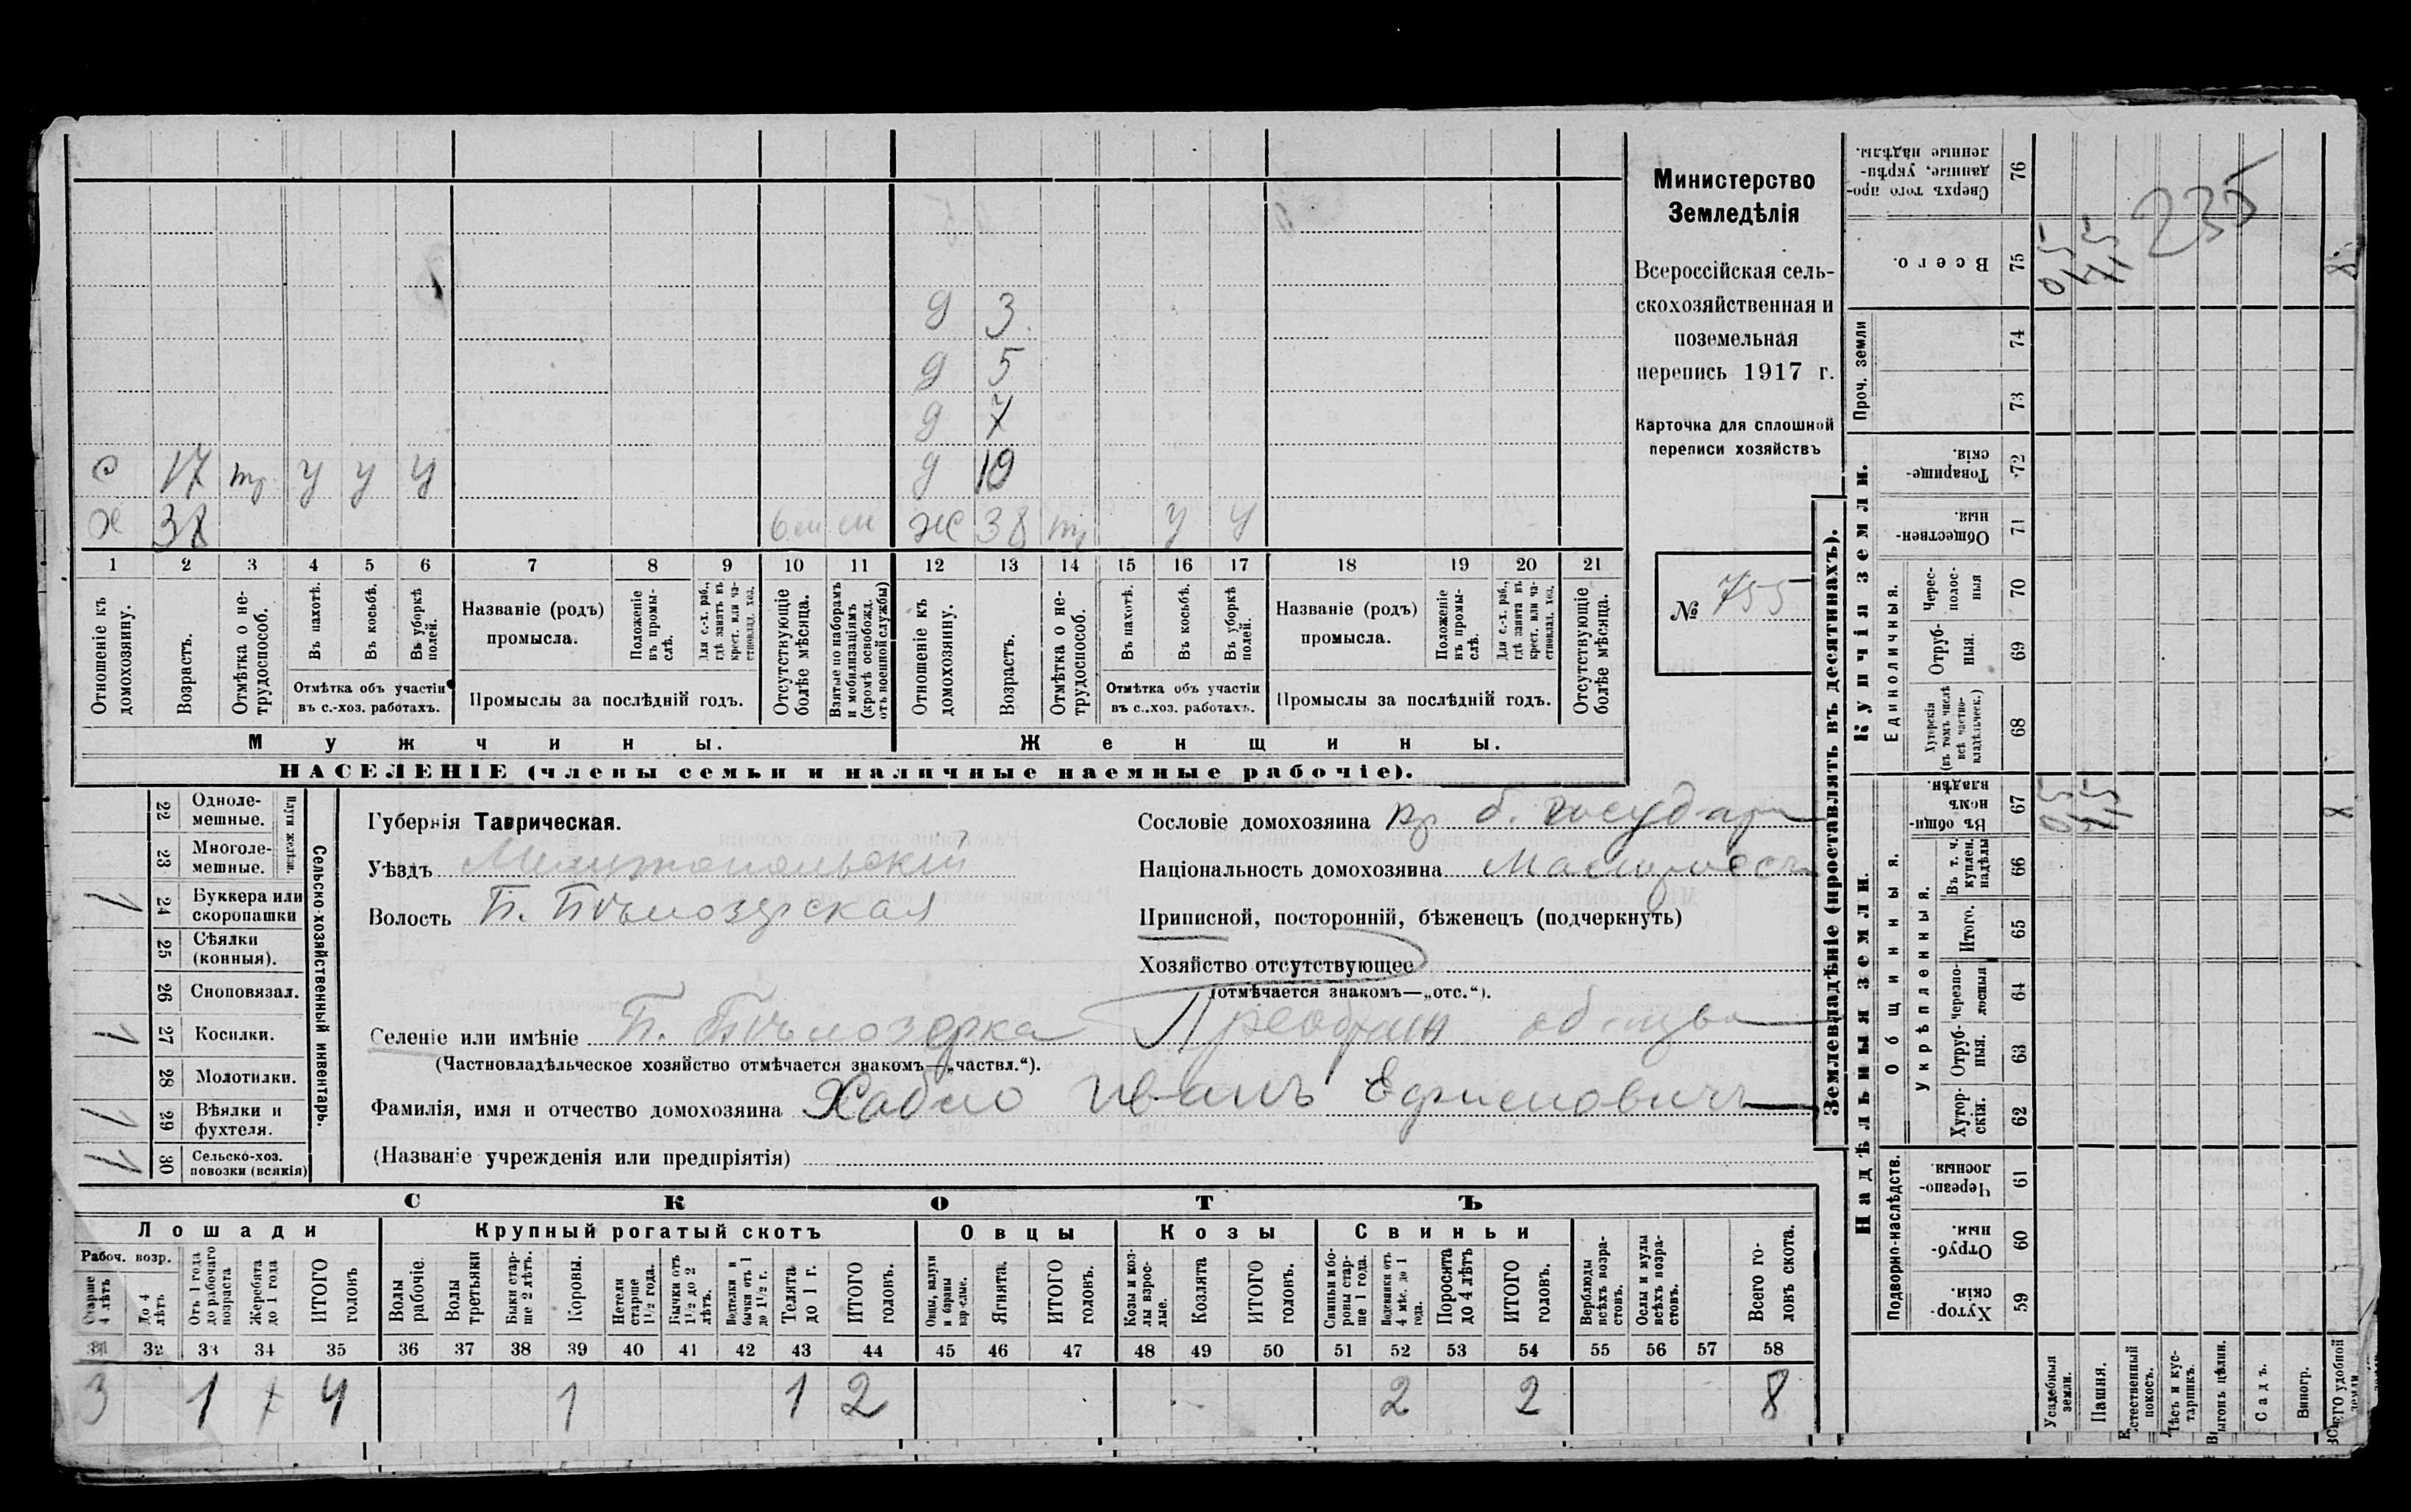 с 17 тр у у у
х 38 6 м м
д 3
д 5
д 7
д 10
ж 38 тр у у
1 2 3 4 5 6 7 8 9 10 11 12 13 14 15 16 17 18 19 20 21
Отношеніе къ домохозяину.
Возрастъ.
Отмѣтка о не-
трудоспособ.
Въ пахотѣ.
Въ косьбѣ.
Въ уборкѣ полей.
Отмѣтка объ участіи
въ с.-хоз. работахъ.
Названіе (родъ)
промысла.
Положеніе въ промы-
слѣ.
Для с.-х. раб.,
гдѣ занятъ въ
крест. или ча-
стновлад. хоз.
Промыслы за послѣдній годъ.
Отсутствующіе
болѣе мѣсяца.
Взятые по наборамъ
и мобилизаціямъ
(кромѣ освобожд.
отъ военной службы)
Отношеніе къ
домохозяину.
Возрастъ.
Отмѣтка о не-
трудоспособ.
Въ пахотѣ.
Въ косьбѣ.
Въ уборкѣ
полей.
Отмѣтка объ участіи
въ с.-хоз. работахъ.
Названіе (родъ)
промысла.
Положеніе
въ промы-
слѣ.
Для с.-х. раб.,
гдѣ занята въ
крест. или ча-
стновлад. хоз.
Промыслы за послѣдній годъ.
Отсутствующіе
болѣе мѣсяца.
Мужчины.
Женщины.
НАСЕЛЕНІЕ (члены семьи и наличные наемные рабочіе).
Министерство
Земледѣлія
Всероссійская сель-
скохозяйственная и
поземельная
перепись 1917 г.
Карточка для сплошной
переписи хозяйствъ
№ 755
22 Одноле-
мешные.
23 Многоле-
мешные.
Плуги желѣзн.
1 24 Буккера или
скоропашки
25 Сѣялки
(конныя).
26 Сноповязал.
1 27 Косилки.
28 Молотилки.
1 29 Вѣялки и
фухтеля.
1 30 Сельско-хоз.
повозки (всякія)
Сельско-хозяйственный инвентарь.
Губернія Таврическая.
Уѣздъ Мелитопольскій
Волость Б. Бѣлозерская
Сословіе домохозяина кр. б. государ
Національность домохозяина Малоросъ
Приписной, посторонній, бѣженецъ (подчеркнуть)
Хозяйство отсутствующее
(отмѣчается знакомъ—„отс.“).
Селеніе или имѣніе Б. Бѣлозерка
(Частновладѣльческое хозяйство отмѣчается знакомъ—„частвл.“).
Фамилія, имя и отчество домохозяина Хабло Иванъ Ефимовичъ
(Названіе учрежденія или предпріятія)
СКОТЪ
Лошади
Крупный рогатый скотъ
Овцы
Козы
Свиньи
Рабоч. возр.
Старше
4 лѣтъ
До 4
лѣтъ
Отъ 1 года
до рабочаго
возраста
Жеребята
до 1 года
ИТОГО
головъ
Волы
рабочіе.
Волы
третьяки
Быки стар-
ше 2 лѣтъ.
Коровы.
Нетели
старше
1½ года.
Бычки отъ
1½ до 2
лѣтъ.
бычки отъ 1
до 1½ г.
Телята
до 1 г.
ИТОГО
головъ.
Овцы, валухи
и бараны
взрослые.
Ягнята.
ИТОГО
головъ.
Козы и коз-
лы взрос-
лые.
Козлята
ИТОГО
головъ.
Свиньи и бо-
ровы стар-
ше 1 года.
Подсвинки отъ
4 мѣс. до 1
года.
Поросята
до 4 лѣтъ
ИТОГО
головъ.
Верблюды
всѣхъ возра-
стовъ.
Ослы и мулы
всѣхъ возра-
стовъ.
Всего го-
ловъ скота.
31 32 33 34 35 36 37 38 39 40 41 42 43 44 45 46 47 48 49 50 51 52 53 54 55 56 57 58
3 1 4 1 1 2 2 2 8
Землевладѣніе (проставлять въ десятинахъ).
Купчія земли.
Надѣльныя земли.
Сверхъ того про-
данные, укрѣп-
ленные надѣлы. 76
Всего. 75
Проч. земли 74
73
Товарище-
скія. 72
Обществен-
ныя. 71
Единоличныя.
Черес-
полос-
ныя 70
Отруб-
ныя. 69
Хуторскія
(въ томъ числѣ
всѣ частно-
владѣльческ.) 68
Общинныя.
Въ общи-
номъ
владѣн. 67
Въ т. ч.
куплен.
надѣлы 66
Укрѣпленныя.
Итого. 65
Черезпо-
лосныя 64
Отруб-
ныя. 63
Хутор-
скія. 62
Подворно-наслѣдств.
Черезпо-
лосныя 61
Отруб-
ныя. 60
Хутор-
скія. 59
Усадебныя
земли.
Пашня.
Естественный
покосъ.
Лѣсъ и кус-
тарникъ.
Выгонъ цѣлин.
Садъ.
Виногр.
ВСЕГО удобной
земли
0,5
7,5
8
0,5
7,5
8
235